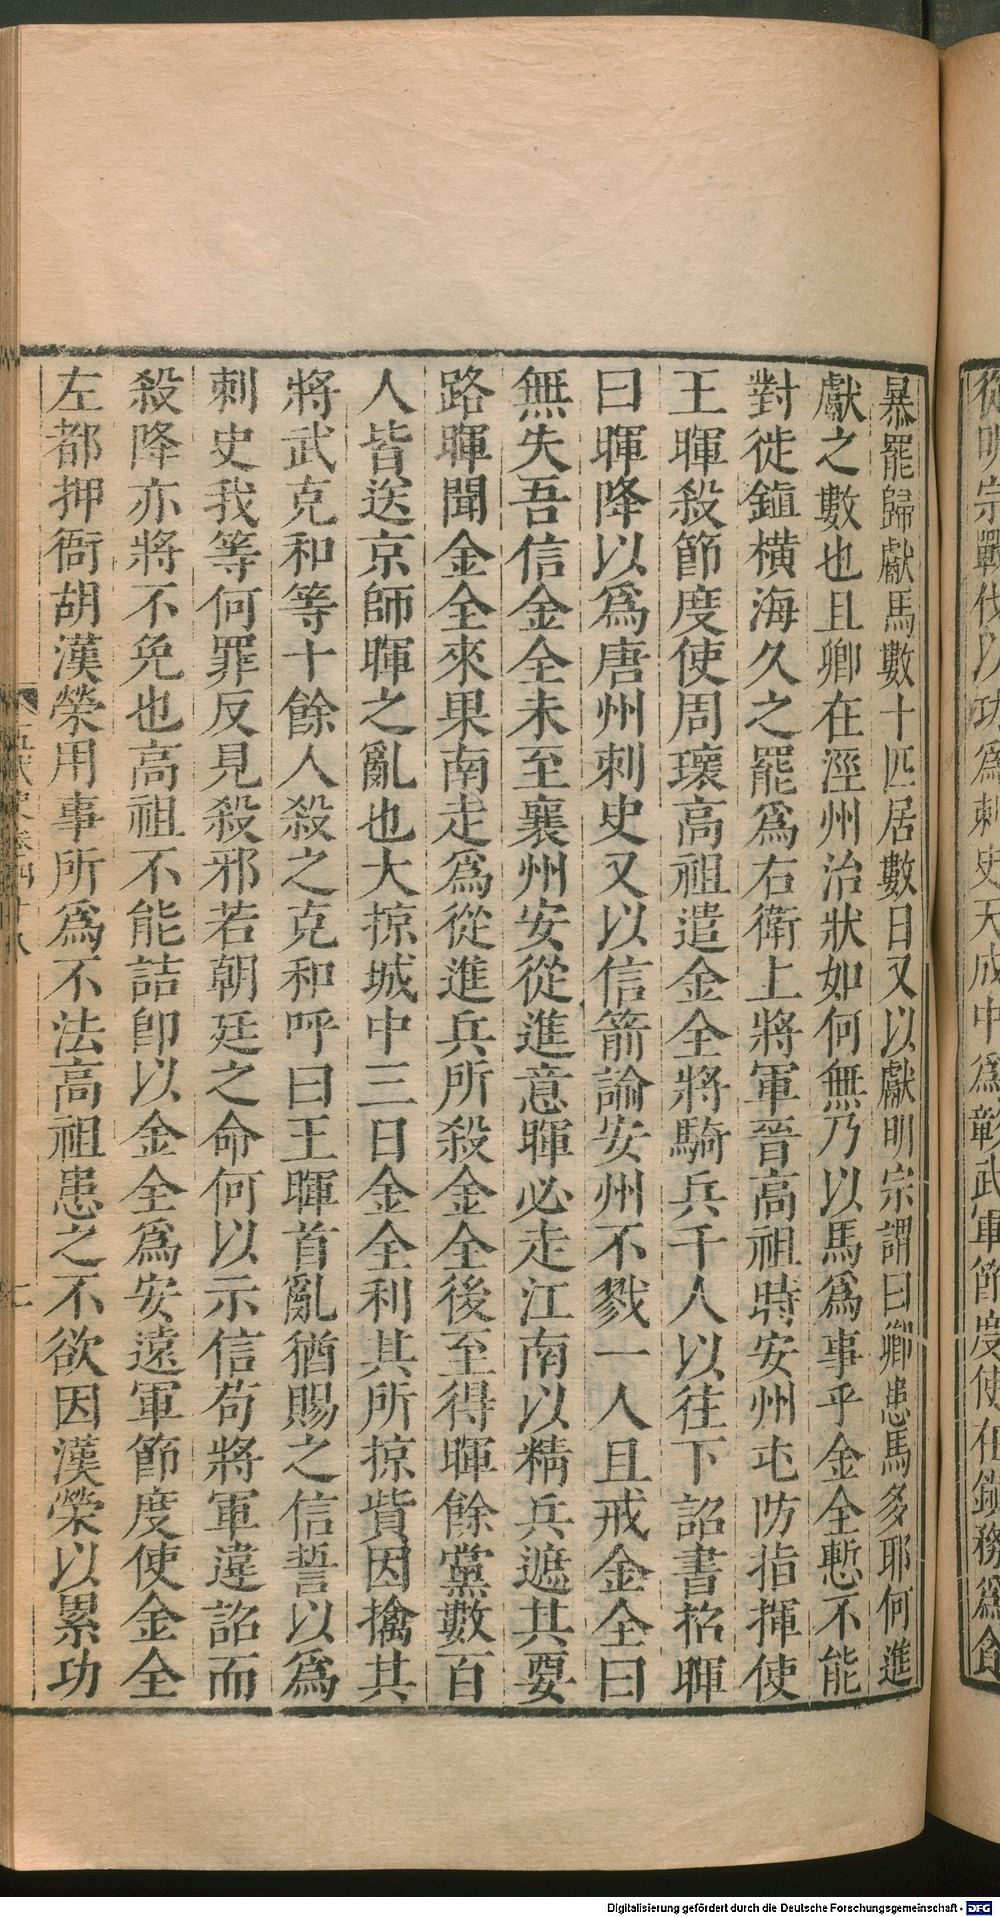 從明宗戰伐以功爲刺史天成中爲彰武軍節度使在鎮務爲貪
暴罷歸獻馬數十匹居數日又以獻明宗謂曰卿患馬多耶何進
獻之數也且卿在涇州治狀如何無乃以馬爲事乎金全慙不能
對徙鎮橫海久之罷爲右衛上將軍晉高祖時安州屯防指揮使
王暉殺節度使周瓌高祖遣金全將騎兵千人以往下詔書招暉
曰暉降以爲唐州刺史又以信箭諭安州不戮一人且戒金全曰
無失吾信金全未至襄州安從進意暉必走江南以精兵遮其要
路暉聞金全來果南走爲從進兵所殺金全後至得暉餘黨數百
人皆送京師暉之亂也大掠城中三日金全利其所掠貲因擒其
將武克和等十餘人殺之克和呼曰王暉首亂猶賜之信誓以爲
刺史我等何罪反見殺邪若朝廷之命何以示信苟將軍違詔而
殺降亦將不免也高祖不能詰卽以金全爲安遠軍節度使金全
左都押衙胡漢榮用事所爲不法高祖患之不欲因漢榮以累功
五代史卷四十八
Digitalisierung gefördert durch die Deutsche Forschungsgemeinschaft - DFG